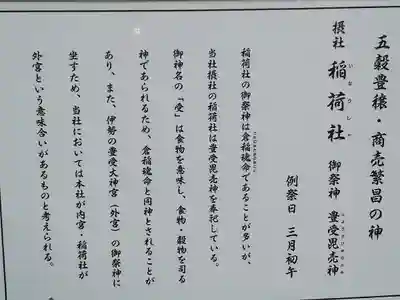 五穀豊穣・商売繁昌の神
摂社 稲荷社 御祭神 豊受毘売神
例祭日 三月初午
稲荷社の御祭神は倉稲魂命であることが多いが、
当社摂社の稲荷社は豊受毘売神を奉祀している。
御神名の「受」は食物を意味し、食物・穀物を司る
神であられるため、倉稲魂命と同神とされることが
あり、また、伊勢の豊受大神宮（外宮）の御祭神に
坐すため、当社においては本社が内宮・稲荷社が
外宮という意味合いがあるものと考えられる。